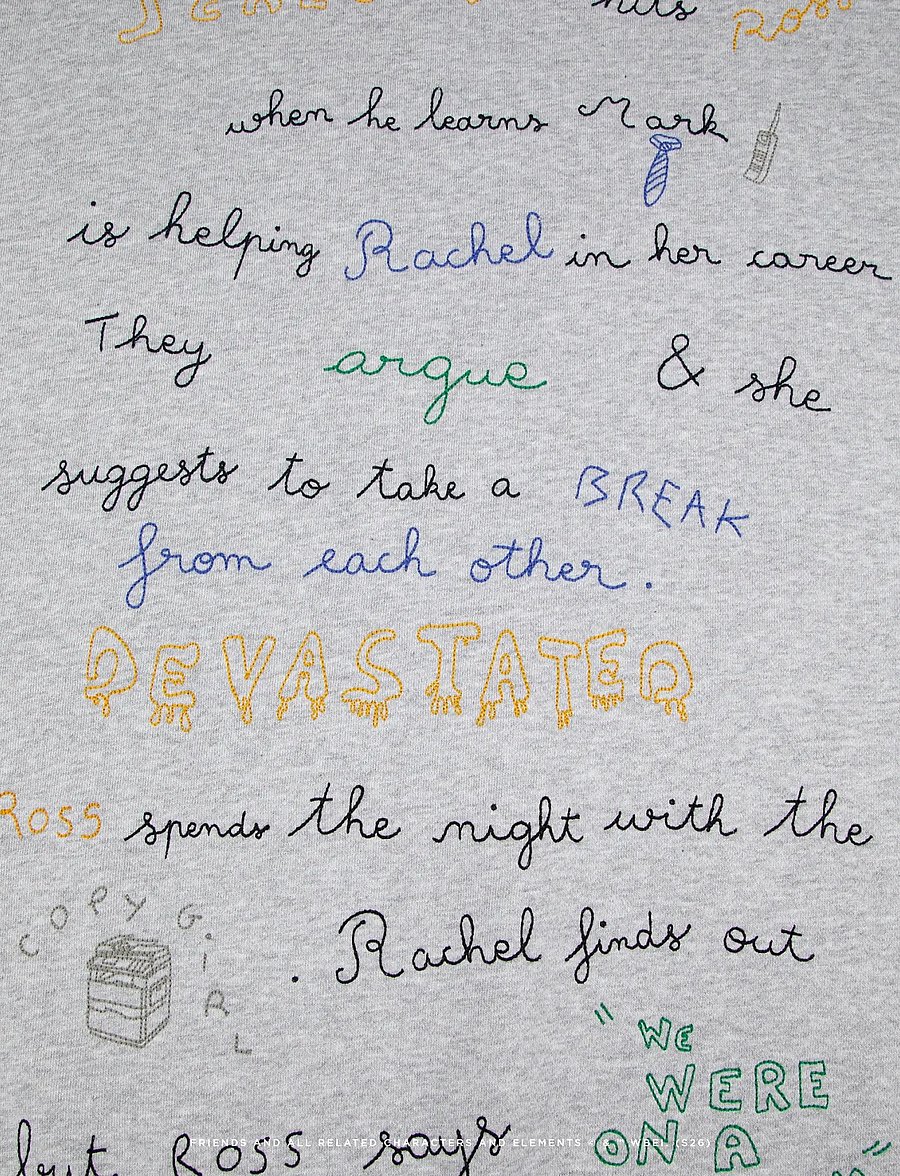 hits Ross
when he learns Mark
is helping Rachel in her career
They argue & she
suggests to take a BREAK
from each other.
DEVASTATED
Ross spends the night with the
COPY GiRL . Rachel finds out
but Ross says "WE WERE ON A "
FRIENDS AND ALL RELATED CHARACTERS AND ELEMENTS © & ™ WBEI. (S26)